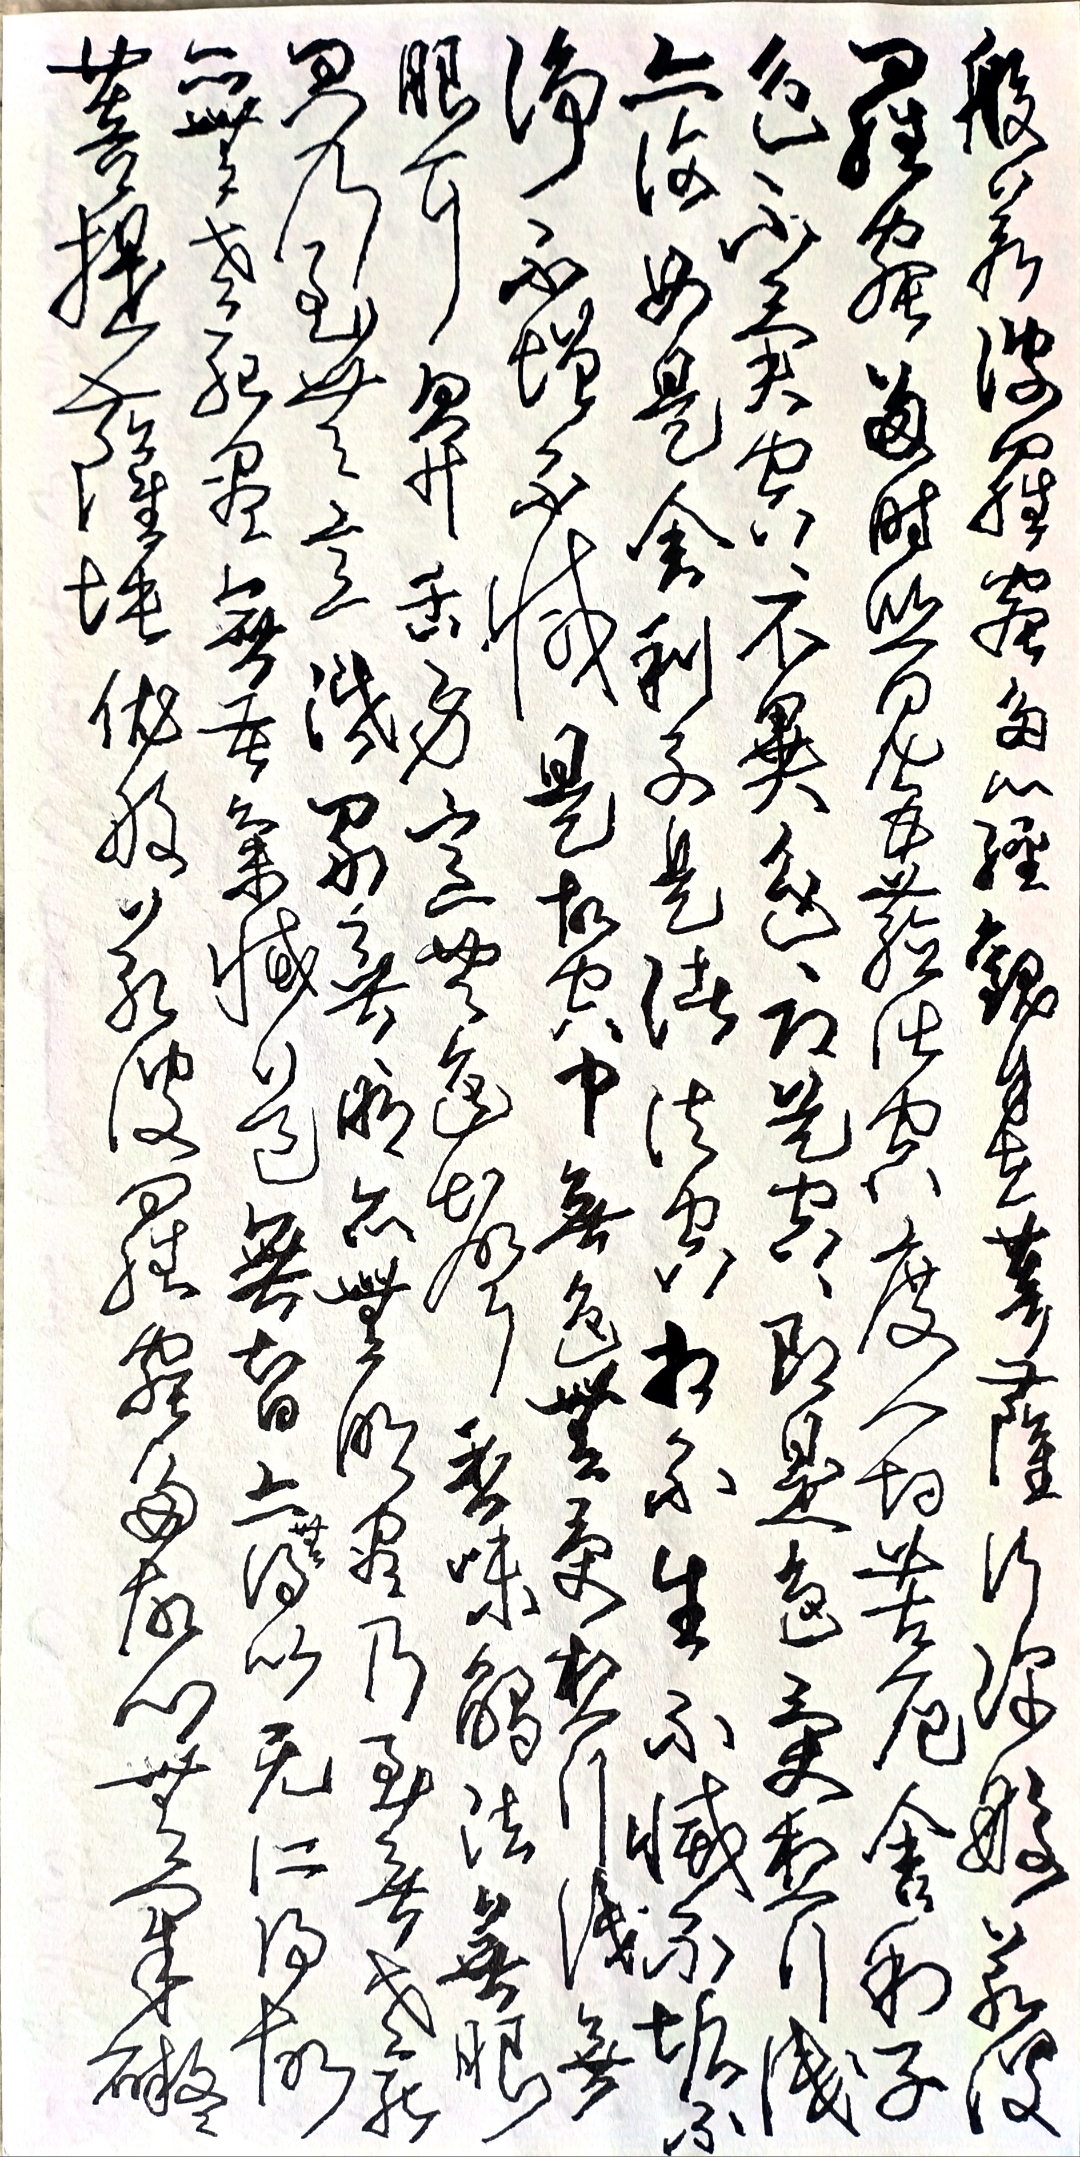 般若波羅蜜多心經觀自在菩薩行深般若波
羅蜜多時照見五蘊皆空度一切苦厄舍利子
色不異空空不異色色即是空空即是色受想行識
亦復如是舍利子是諸法空相不生不滅不垢不
淨不增不減是故空中無色無受想行識無
眼耳鼻舌身意無色聲香味觸法無眼
界乃至無意識界無無明亦無無明盡乃至無老死
亦無老死盡無苦集滅道無智亦無得以无所得故
菩提薩埵依般若波羅蜜多故心無罣礙